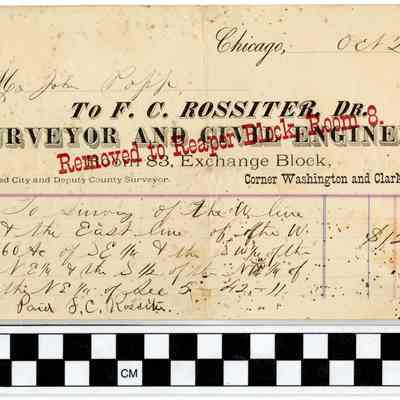 Chicago, Oct 2
John Popp
TO F. C. ROSSITER, DR.
URVEYOR AND CIVIL ENGINE
Removed to Reaper Block, Room 8.
88, Exchange Block,
ed City and Deputy County Surveyor.
Corner Washington and Clark
To Survey of the W line
& the East line of of the W.
60 Ac of S E ¼ & the S W ¼ of the
N E ¼ & the S ½ of the N W ¼ of
the N E ¼ of Sec 5 - 42 - 11
$12
Paid F. C. Rossiter.
CM